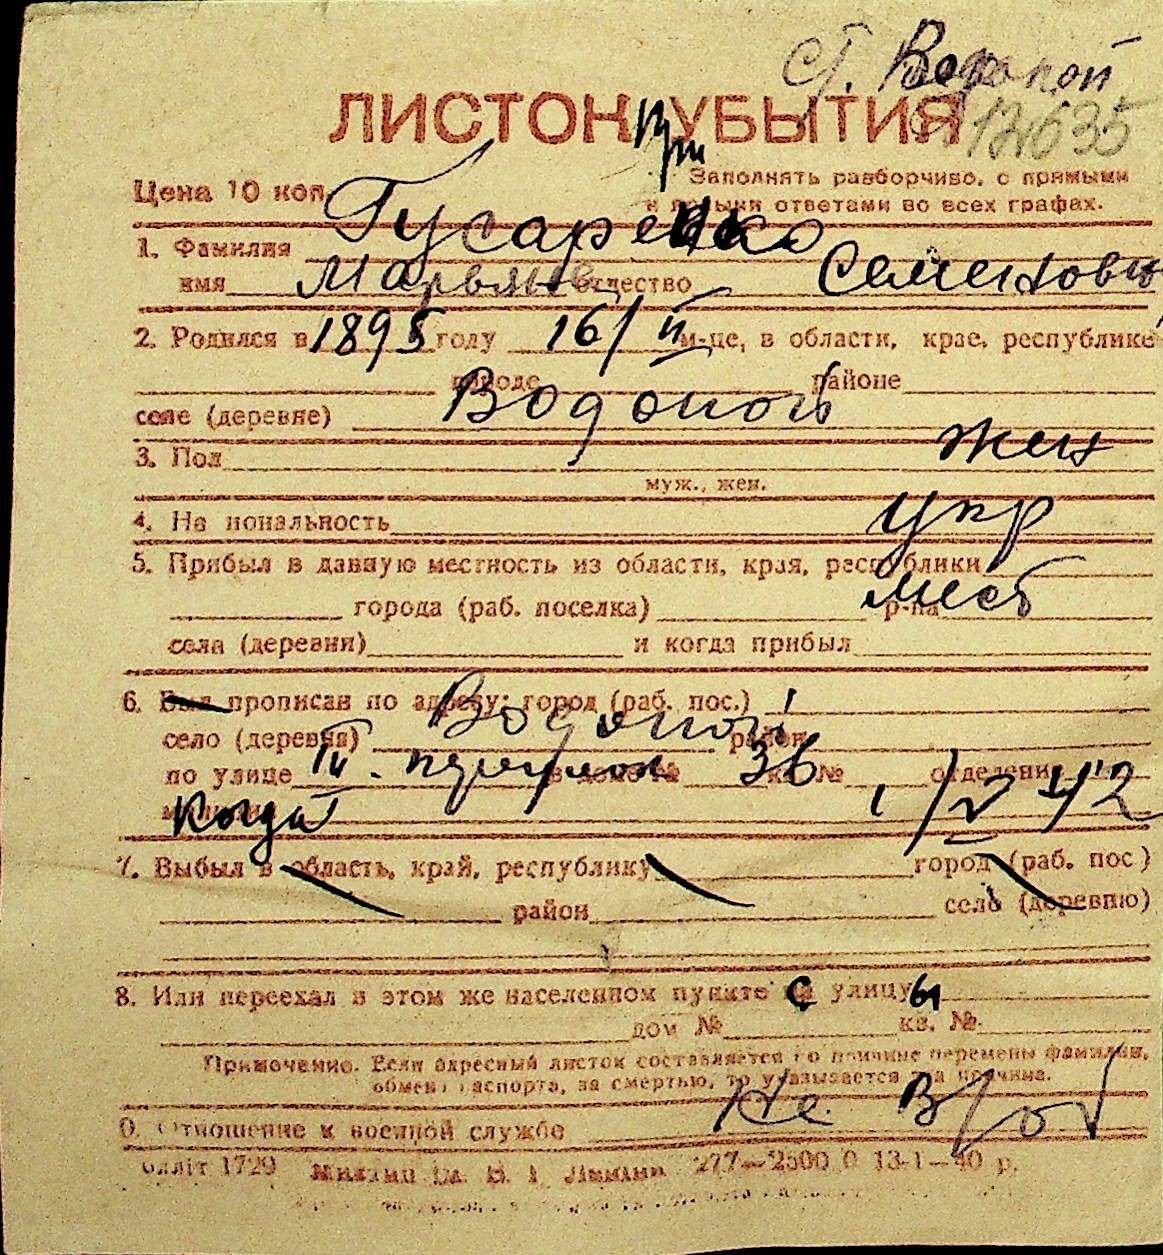 ст. Водопой
ЛИСТОК УБЫТИЯ
12635
Цена 10 коп.
Заполнять разборчиво, с прямыми
и полными ответами во всех графах.
1. Фамилия Гусаренко
имя Марьяна отчество Семеновна
2. Родился в 1895 году 16/II м-це, в области, крае, республике
городе районе
селе (деревне) Водопой
3. Пол жен
муж., жен.
4. Национальность укр
5. Прибыл в данную местность из области, края, республики
города (раб. поселка) р-на мест
села (деревни) и когда прибыл
6. Был прописан по адресу: город (раб. пос.)
село (деревня) Водопой район
по улице IV в доме № 36 кв. № отделение
милиции Когда 1/V 42
7. Выбыл в область, край, республику город (раб. пос.)
район село (деревню)
8. Или переехал в этом же населенном пункте с улицы
дом № кв. №
Примечание. Если адресный листок составляется по причине перемены фамилии,
обмена паспорта, за смертью, то указывается эта причина.
9. Отношение к военной службе не в/об
277—2500 0 13-1—40 р.